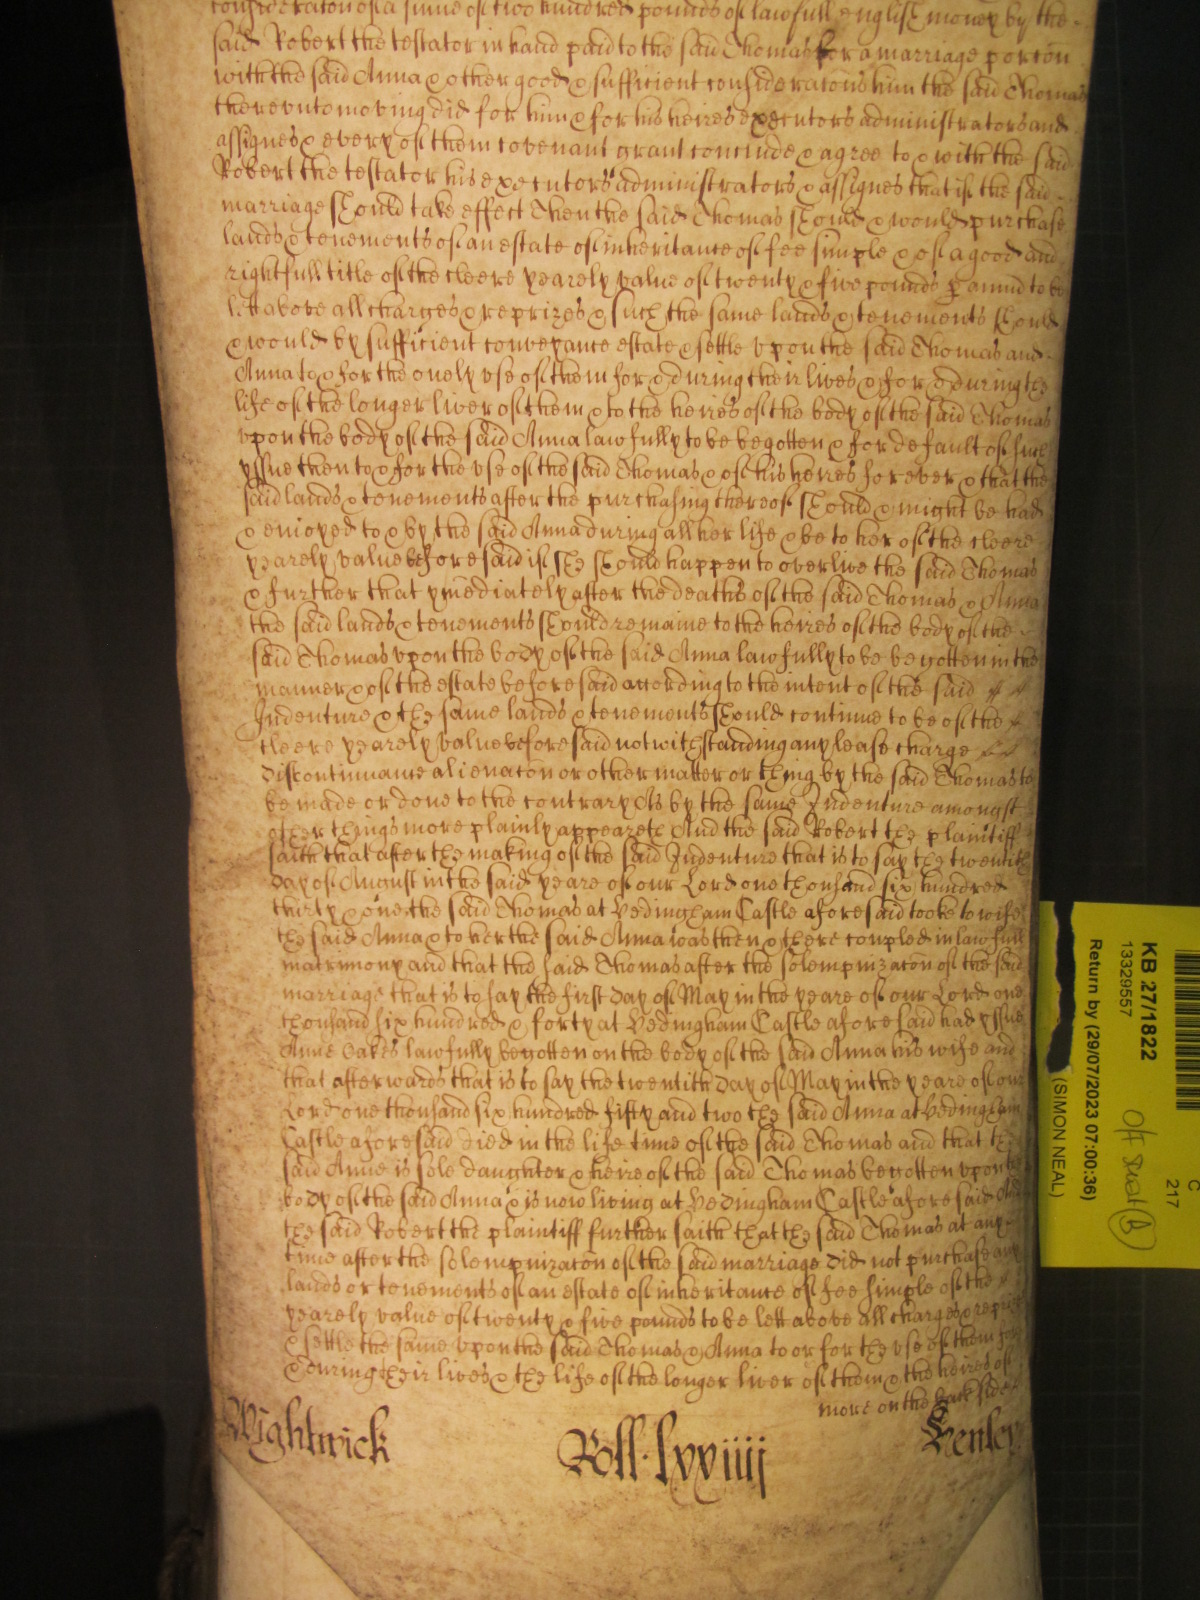 consideraton of a sume of two hundred pounds of lawfull english money by the
said Robert the testator in hand paid to the said Thomas for a marriage porcon
with the said Anna & other good & sufficient consideratons him the said Thomas
thereunto moving did for him & for his heires executors administrators and
assignes & every of them covenant grant conclude & agree to & with the said
Robert the testator his executors administrators & assignes that if the said
marriage should take effect Then the said Thomas should & would purchase
lands & tenements of an estate of inheritance of fee simple & of a good and
rightfull title of the cleere yearely value of twenty & five pounds p annum to be
lett above all charges & reprizes & such the same lands & tenements should
& would by sufficient conveyance estate & settle upon the said Thomas and
Anna to & for the onely use of them for & during their lives & for & during the
life of the longer liver of them & to the heires of the body of the said Thomas
upon the body of the said Anna lawfully to be begotten & for default of such
yssue then to & for the use of the said Thomas & of his heires for ever & that the
said lands & tenements after the purchasing thereof should & might be had
& enioyed to & by the said Anna during all her life & be to her of the cleere
yearely value beforesaid if she should happen to overlive the said Thomas
& further that ymediately after the deaths of the said Thomas & Anna
the said lands & tenements should remaine to the heires of the body of the
said Thomas upon the body of the said Anna lawfully to be begotten in the
manner & of the estate beforesaid according to the intent of the said
Indenture & the same lands & tenements should continue to be of the
cleere yearely value beforesaid notwithstanding any lease charge
discontinuance alienaton or other matter or thing by the said Thomas to
be made or done to the contrary As by the same Indenture amongst
other things more plainly appeareth And the said Robert the plaintiff
saith that after the making of the said Indenture that is to say the twentith
day of August in the said yeare of our Lord one thousand six hundred
thirty & one the said Thomas at Bedingham Castle aforesaid tooke to wife
the said Anna & to her the said Anna was then & there coupled in lawfull
matrimony and that the said Thomas after the solempnizaton of the said
marriage that is to say the first day of May in the yeare of our Lord one
thousand six hundred & forty at Bedingham Castle aforesaid had yssue
Anne Oakes lawfully begotten on the body of the said Anna his wife and
that afterwards that is to say the twentith day of May in the yeare of our
Lord one thousand six hundred fifty and two the said Anna at Bedingham
Castle aforesaid died in the life time of the said Thomas and that the
said Anne is sole daughter & heire of the said Thomas begotten upon the
body of the said Anna & is now living at Bedingham Castle aforesaid And
the said Robert the plaintiff further saith that the said Thomas at any
time after the solempnizaton of the said marriage did not purchase any
lands or tenements of an estate of inheritance of fee simple of the
yearely value of twenty & five pounds to be lett above all charges & reprizes
& settle the same upon the said Thomas & Anna to or for the use of them for
& during their lives & the life of the longer liver of them & the heires of
more on the back side
Wightwick Roll lxxiiij Henley
KB 27/1822
13329557
Return by (29/07/2023 07:00:36)
(SIMON NEAL)
C
217